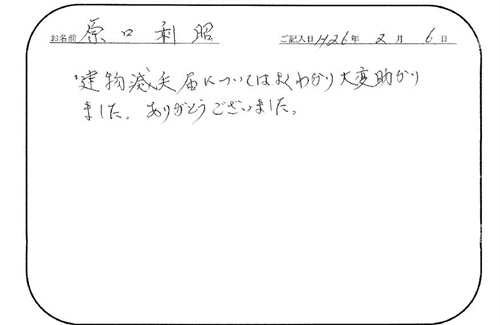 お名前 原口利昭 ご記入日 H26年 2月 6日
建物滅失届についてはよくわかり大変助かり
ました。ありがとうございました。